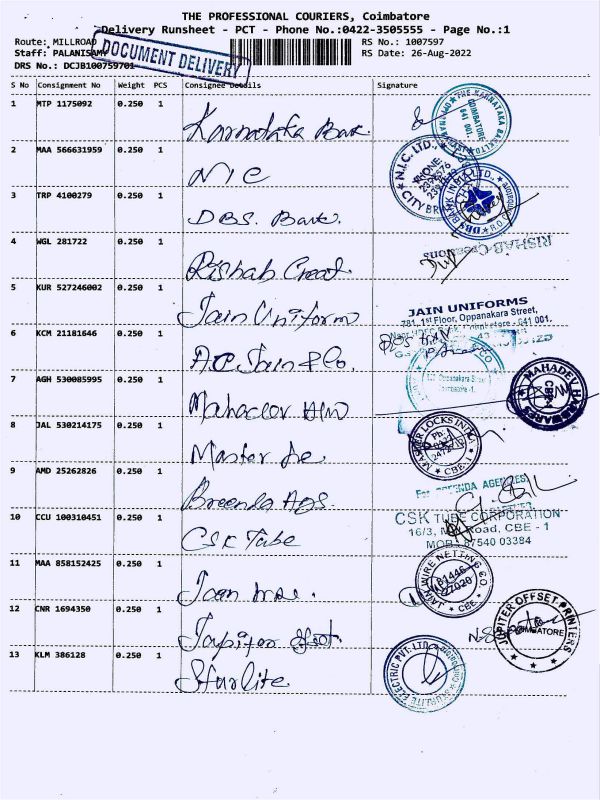 THE PROFESSIONAL COURIERS, Coimbatore
Delivery Runsheet - PCT - Phone No.:0422-3505555 - Page No.:1
Route: MILLROAD
RS No.: 1007597
Staff: PALANISAMY
RS Date: 26-Aug-2022
DRS No.: DCJB100759701
DOCUMENT DELIVERY
S No Consignment No Weight PCS Consignee Details Signature
1 MTP 1175092 0.250 1 Karnataka Bank
THE KARNATAKA BANK LTD
COIMBATORE
641 001
2 MAA 566631959 0.250 1 NIC
N.I.C. LTD.,
PHONE:
CITY BR
3 TRP 4100279 0.250 1 DBS. Bank.
DBS BANK INDIA LTD.
4 WGL 281722 0.250 1 Rishab Creat
RISHAB Creations
5 KUR 527246002 0.250 1 Jain Uniform
JAIN UNIFORMS
781, 1st Floor, Oppanakara Street,
Coimbatore - 641 001.
6 KCM 21181646 0.250 1 A.P. Jain & Co.
Oppanakara Street
Coimbatore -1.
7 AGH 530085995 0.250 1 Mahadev
MAHADEV HARDWARES
CBE
8 JAL 530214175 0.250 1 Master
MASTER LOCKS INDIA
Ph:
CBE-1
9 AMD 25262826 0.250 1 Breenda Ags.
For BREENDA AGENCIES
10 CCU 100310451 0.250 1 CSK Tube
CSK TUBE CORPORATION
16/3, Mill Road, CBE - 1
MOB: 87540 03384
11 MAA 858152425 0.250 1 Jain Wire
JAIN WIRE NETTING CO
CBE
12 CNR 1694350 0.250 1 Jupiter Offset.
JUPITER OFFSET PRINTERS
COIMBATORE
13 KLM 386128 0.250 1 Sturlite
STURLITE ELECTRIC PVT. LTD